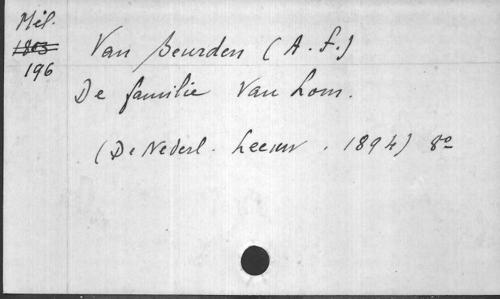 Mél.
1803
196
Van Beurden (A. F.)
De familie Van Lom.
(De Nederl. Leeuw. 1894) 8º